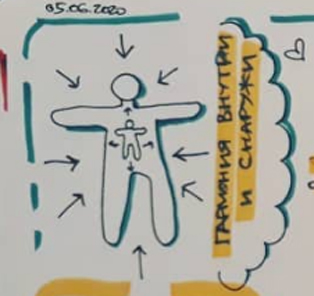 05.06.2020
ГАРМОНИЯ ВНУТРИ
И СНАРУЖИ